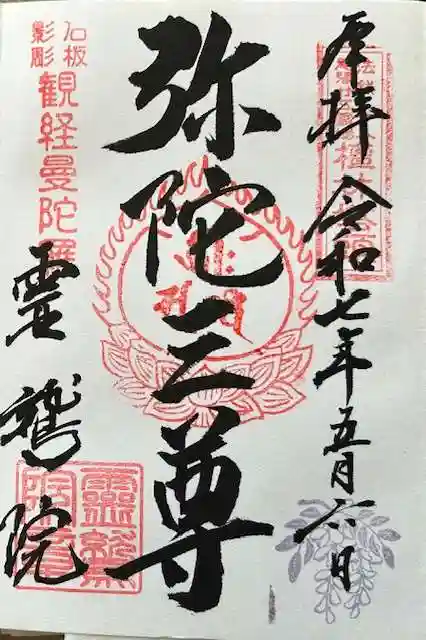 奉拝 令和七年五月六日
弥陀三尊
石板
影彫
観経曼陀羅
霊鷲院